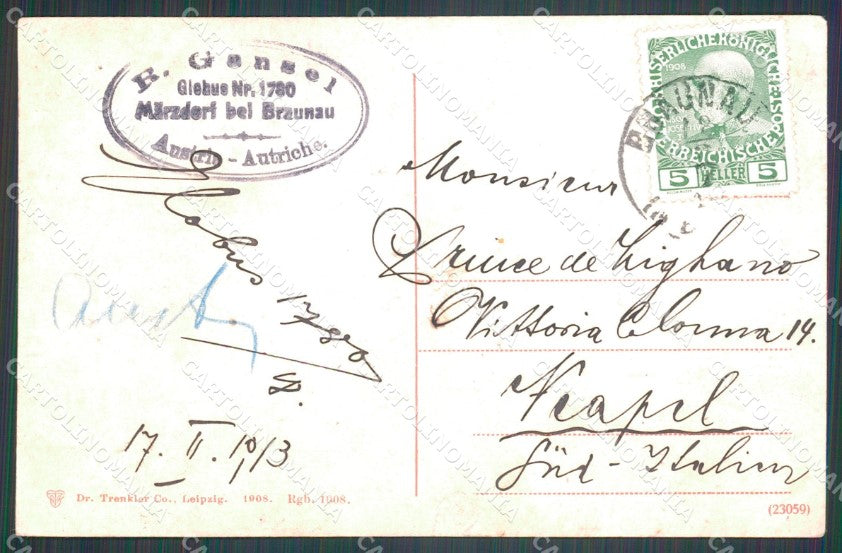 B. Gansel
Globus Nr. 1780
Märzdorf bei Braunau
Austria - Autriche.
1908
5 HELLER 5
BRAUNAU
Monsieur
Prince de Lighano
Vittoria Colonna 14.
Neapel
Süd-Italien
Globus 1780
17. II. 1913
Dr. Trenkler Co., Leipzig. 1908. Rgb. 1908.
(23059)
CARTOLINOMANIA